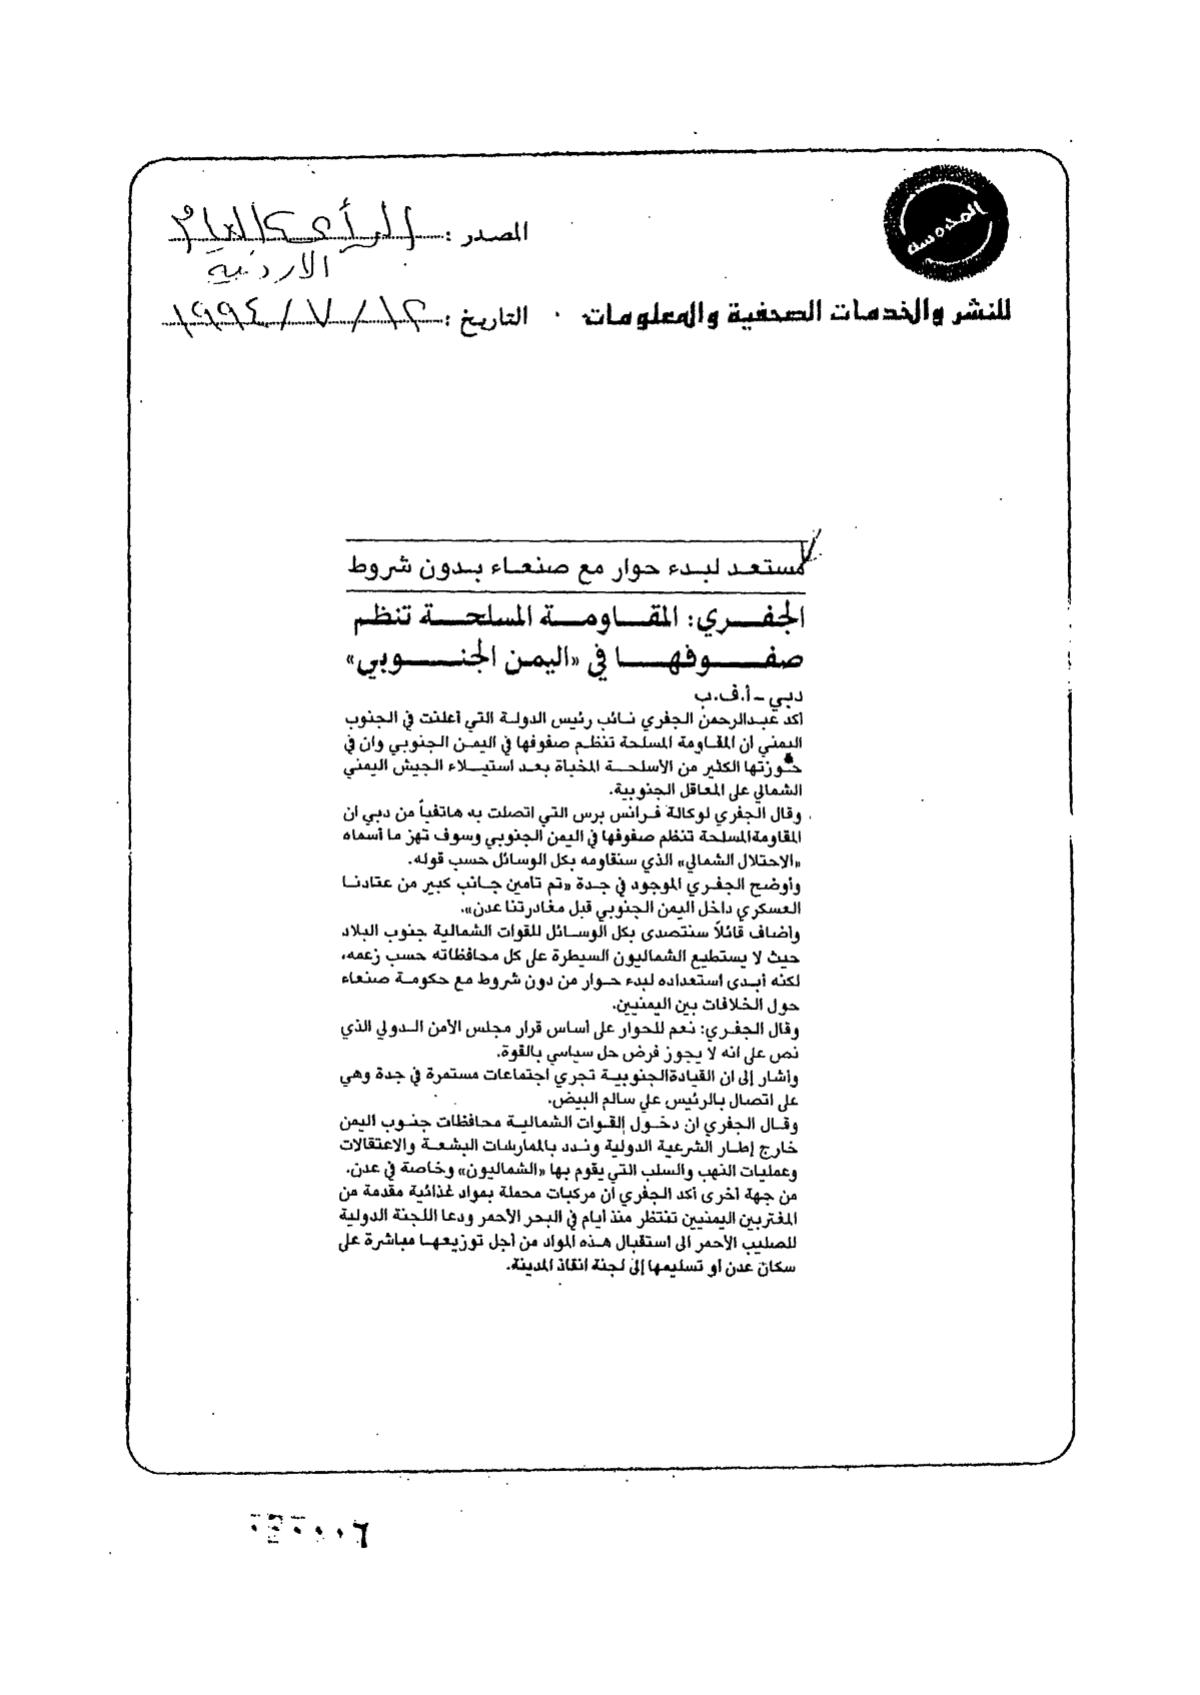 المحروسة
المصدر : الرأي العام
الاردنية
للنشر والخدمات الصحفية والمعلومات
التاريخ : ١٩٩٤/٧/١٢
مستعد لبدء حوار مع صنعاء بدون شروط
الجفري: المقاومة المسلحة تنظم
صفوفها في «اليمن الجنوبي»
دبي - أ.ف.ب
أكد عبدالرحمن الجفري نائب رئيس الدولة التي أعلنت في الجنوب
اليمني أن المقاومة المسلحة تنظم صفوفها في اليمن الجنوبي وان في
حوزتها الكثير من الأسلحة المخباة بعد استيلاء الجيش اليمني
الشمالي على المعاقل الجنوبية.
وقال الجفري لوكالة فرانس برس التي اتصلت به هاتفياً من دبي ان
المقاومة المسلحة تنظم صفوفها في اليمن الجنوبي وسوف تهز ما أسماه
«الاحتلال الشمالي» الذي سنقاومه بكل الوسائل حسب قوله.
وأوضح الجفري الموجود في جدة «تم تامين جانب كبير من عتادنا
العسكري داخل اليمن الجنوبي قبل مغادرتنا عدن».
وأضاف قائلاً سنتصدى بكل الوسائل للقوات الشمالية جنوب البلاد
حيث لا يستطيع الشماليون السيطرة على كل محافظاته حسب زعمه،
لكنه أبدى استعداده لبدء حوار من دون شروط مع حكومة صنعاء
حول الخلافات بين اليمنيين.
وقال الجفري: نعم للحوار على أساس قرار مجلس الأمن الدولي الذي
نص على انه لا يجوز فرض حل سياسي بالقوة.
وأشار إلى ان القيادة الجنوبية تجري اجتماعات مستمرة في جدة وهي
على اتصال بالرئيس علي سالم البيض.
وقال الجفري ان دخول القوات الشمالية محافظات جنوب اليمن
خارج إطار الشرعية الدولية وندد بالممارسات البشعة والاعتقالات
وعمليات النهب والسلب التي يقوم بها «الشماليون» وخاصة في عدن.
من جهة أخرى أكد الجفري أن مركبات محملة بمواد غذائية مقدمة من
المغتربين اليمنيين تنتظر منذ أيام في البحر الأحمر ودعا اللجنة الدولية
للصليب الأحمر الى استقبال هذه المواد من أجل توزيعها مباشرة على
سكان عدن أو تسليمها إلى لجنة انقاذ المدينة.